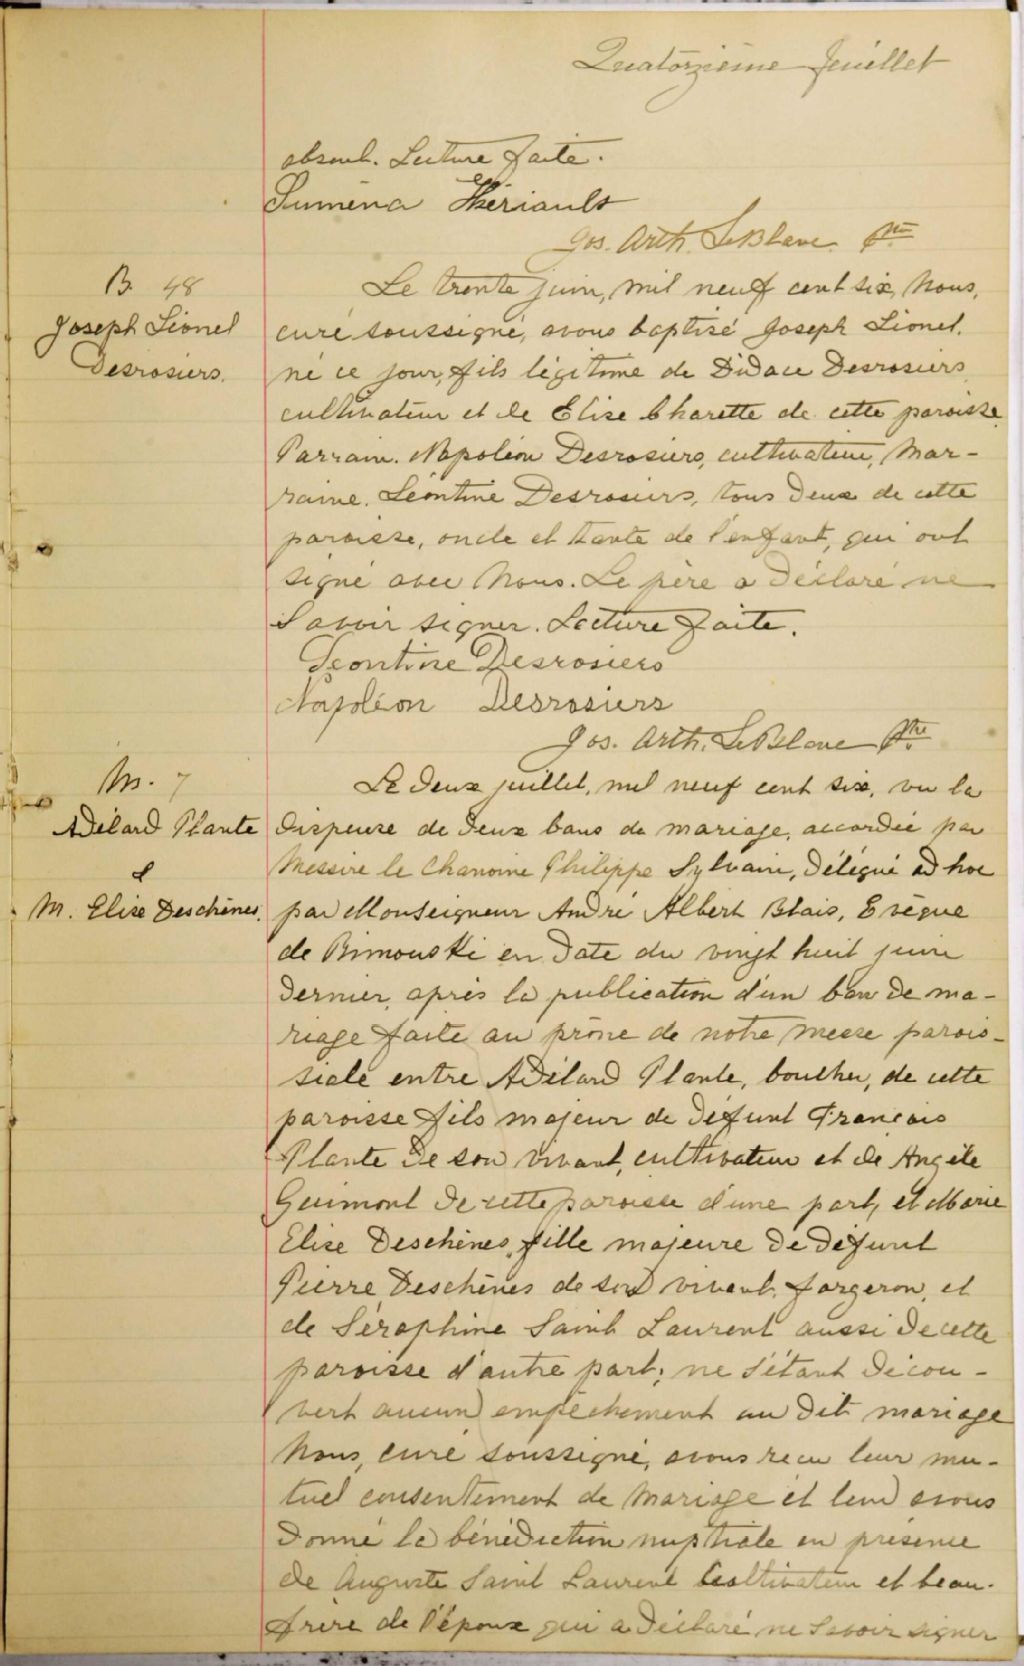 Quatorzième feuillet
absent. Lecture faite.
Suména Thériault
Jos. Arth. LeBlanc Ptre
B. 48
Joseph Lionel
Desrosiers.
Le trente juin, mil neuf cent six, Nous,
curé soussigné, avons baptisé Joseph Lionel,
né ce jour, fils légitime de Didace Desrosiers
cultivateur et de Elise Charette de cette paroisse.
Parrain. Napoléon Desrosiers, cultivateur, Mar-
raine. Léontine Desrosiers, tous deux de cette
paroisse, oncle et tante de l'enfant, qui ont
signé avec Nous. Le père a déclaré ne
savoir signer. Lecture faite.
Leontine Desrosiers
Napoléon Desrosiers
Jos. Arth. LeBlanc Ptre
M. 7
Adélard Plante
&
M. Elise Deschènes.
Le deux juillet, mil neuf cent six, vu la
dispense de deux bans de mariage, accordée par
Messire le Chanoine Philippe Sylvain, délégué ad hoc
par Monseigneur André Albert Blais, Evèque
de Rimouski en date du vingt huit juin
dernier, après la publication d'un ban de ma-
riage faite au prône de notre messe parois-
siale entre Adélard Plante, boucher, de cette
paroisse fils majeur de défunt François
Plante de son vivant, cultivateur et de Angèle
Guimont de cette paroisse d'une part, et Marie
Elise Deschènes, fille majeure de défunt
Pierre Deschènes de son vivant, forgeron, et
de Séraphine Saint Laurent aussi de cette
paroisse d'autre part; ne s'étant décou-
vert aucun empêchement au dit mariage
Nous, curé soussigné, avons reçu leur mu-
tuel consentement de mariage et leur avons
donné la bénédiction nuptiale en présence
de Auguste Saint Laurent cultivateur et beau-
frère de l'époux qui a déclaré ne savoir signer